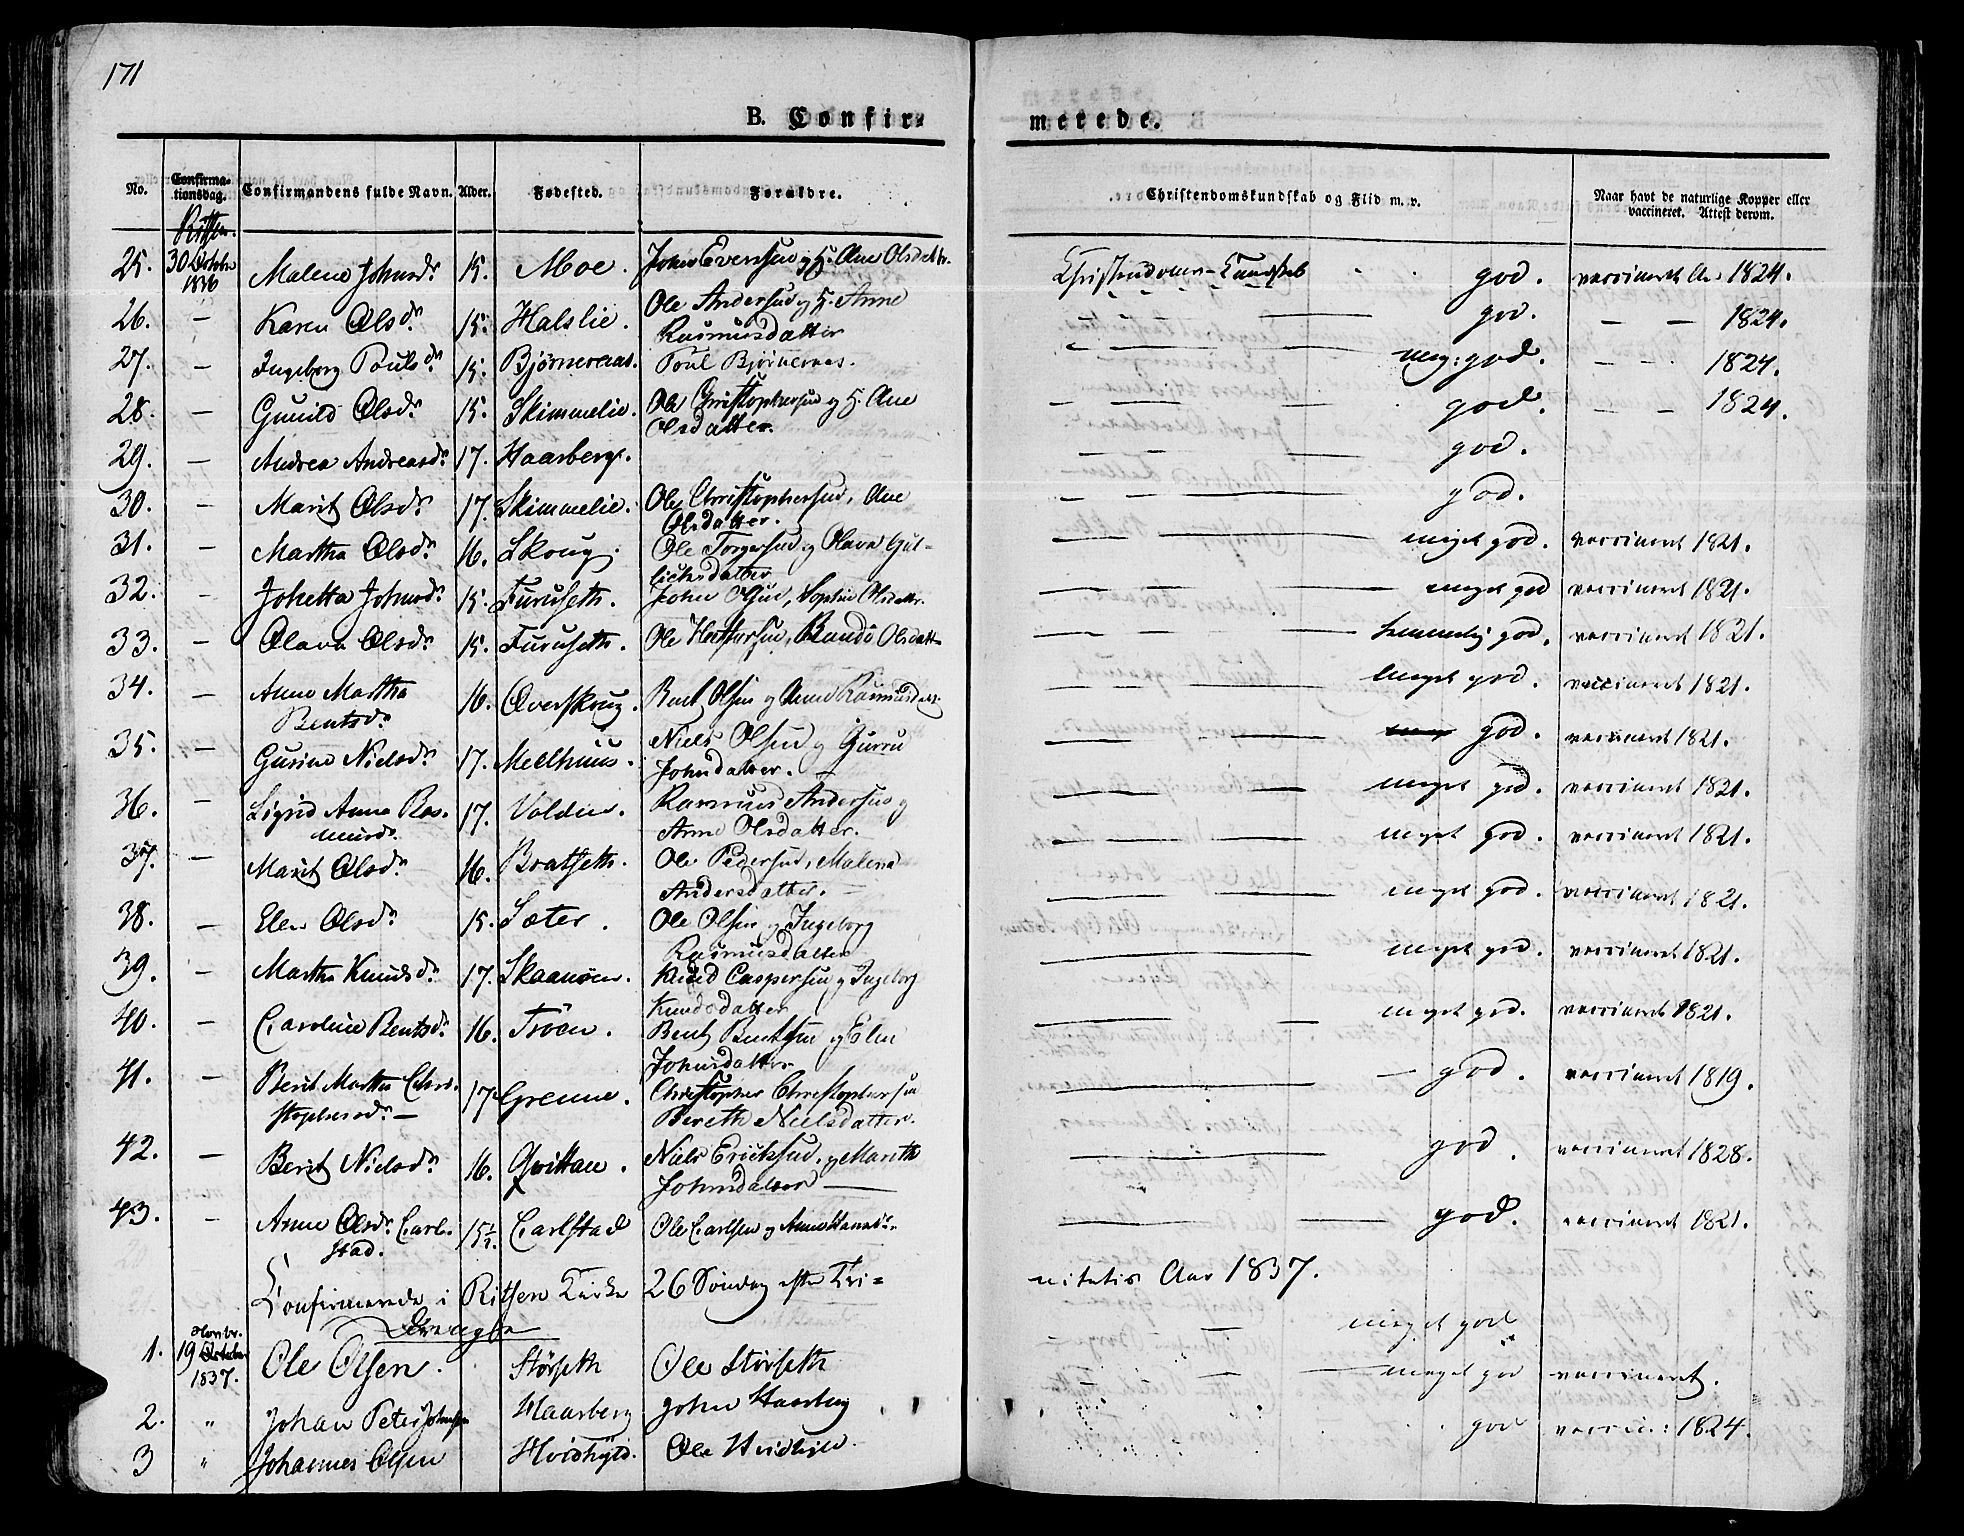 171
B. Confir-
merede.
No. Confirma-
tionsdag. Confirmandens fulde Navn. Alder. Fødested. Forældre. Christendomskundskab og Flid m. v. Naar havt de naturlige Kopper eller
vaccineret. Attest derom.
25. 30 October 1836 Malena Johnsdr 15. Moe. John Evensen og H. Ane Olsdatter. Christendoms-Kundskab god. vaccineret 1824.
26. — Karen Olsdr 15. Halslie. Ole Andersen og H. Anne
Rasmusdatter — god. — — 1824.
27. — Ingeborg Poulsdr 15. Bjørneraas. Poul Bjørneraas. — meg: god. — — 1824.
28. — Gunild Olsdr 15. Skimmelie. Ole Christophersen og H. Ane
Olsdatter. — god. — — 1824.
29. — Andrea Andreasdr 17. Haarberg. — god.
30. — Marit Olsdr 17. Skimmelie. Ole Christophersen, Ane
Olsdatter. — god.
31. — Martha Olsdr 16. Skoug. Ole Torgersen og Olava Gul-
lichsdatter — meget god. vaccineret 1821.
32. — Johetta Johnsdr 15. Furuseth. John Olsen, Sophie Olsdattr. — meget god vaccineret 1821.
33. — Olava Olsdr 15. Furuseth. Ole Randi Olsdattr — temmelig god. vaccineret 1821.
34. — Anne Martha
Bentsdr 16. Overskoug. Bent Olsen og Anne Rasmusdatr — meget god. vaccineret 1821.
35. — Gurine Nielsdr 17. Meelhuus. Niels Olsen og Gurru
Johnsdatter. — god. vaccineret 1821.
36. — Sigrid Anna Ras-
musdr. 17. Valden. Rasmus Andersen og
Anne Olsdatter. — meget god. vaccineret 1821.
37. — Marit Olsdr 16. Bratseth. Ole Pedersen, Malena
Andersdatter. — meget god. vaccineret 1821.
38. — Elen Olsdr 15. Sæter. Ole Olsen og Ingeborg
Rasmusdatter — meget god. vaccineret 1821.
39. — Martha Knudsdr 17. Skaanøen. Knud Caspersen og Ingeborg
Knudsdatter — meget god. vaccineret 1821.
40. — Caroline Bentsdr 16. Trøen. Bent Bentsen og Elen
Johnsdatter — meget god. vaccineret 1821.
41. — Berit Martha Chri-
stophersdr — 17 Grenne. Christopher Christophersen
Bereth Nielsdatter. — god. vaccineret 1819.
42. — Berit Nielsdr 16. Qvittan. Niels Ericksen og Marith
Johnsdatter — god. vaccineret 1828.
43. — Anne Olsdr Carl-
stad. 15½. Carlstad Ole Carlsen og Anne — god. vaccineret 1821.
Confirmerede i Rissen Kirke 26 Søndag efter Tri-
nitatis Aar 1837.
Drenge
1. 19 1837. Ole Olsen. Størseth Ole Størseth — meget god
2. " Johan Peter Johnsen Haarberg John Haarberg — meget god vaccineret.
3 " Johannes Olsen Hvidhyld. Ole Hvidhyld. god vaccin: 1824.